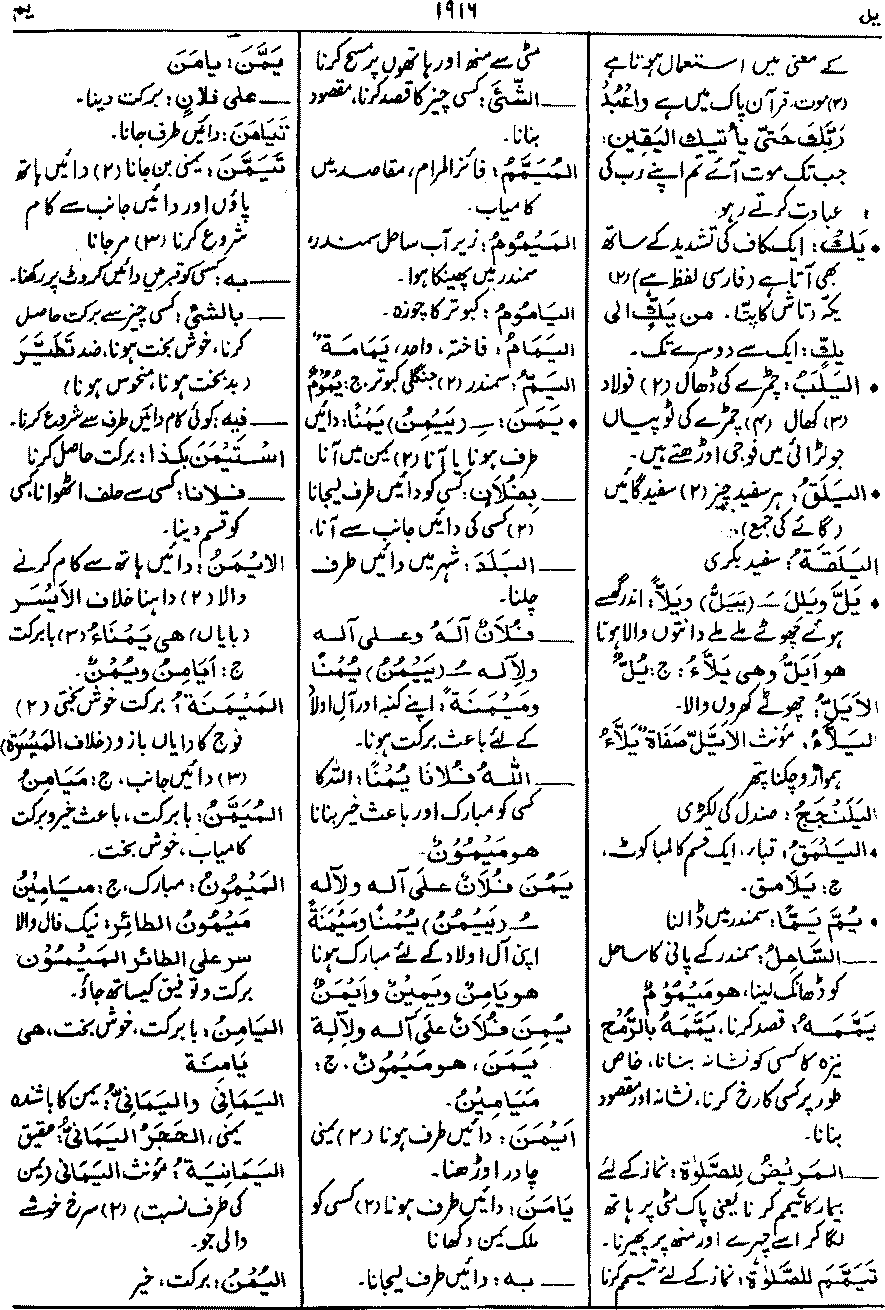 یل
۱۹۱۶
یم
کے معنی میں استعمال ہوتا ہے
(۲) موت، قرآن پاک میں ہے وَاعْبُدْ
رَبَّكَ حَتّٰى يَأْتِيَكَ الْيَقِيْن:
جب تک موت آئے تم اپنے رب کی
عبادت کرتے رہو
• يَكْ: ایک کاف کی تشدید کے ساتھ
بھی آتا ہے (فارسی لفظ ہے) (۲)
یکّہ (تاش کا پتّا۔ من يَكٍّ الى
يكٍّ: ایک سے دوسرے تک۔
• اليَلَبُ: چمڑے کی ڈھال (۲) فولاد
(۳) کھال (۴) چمڑے کی ٹوپیاں
جو لڑائی میں فوجی اوڑھتے ہیں۔
• اليَلَقُ: ہر سفید چیز (۲) سفید گائیں
(گائے کی جمع)۔
اليَلَقَةُ: سفید بکری
• يَلَّ ويَلِلَ ــَ (يَيَلُّ) ويَلاًّ: اندر گھسے
ہوئے چھوٹے ملے ملے دانتوں والا ہونا
هو اَيَلُّ وهي يَلاَّءُ: ج: يُلٌّ
الاَيَلُّ: چھوٹے کھروں والا۔
اليَلاَّءُ: مؤنث الاَيَلُّ صَفَاةٌ يَلاَّءُ
ہموار و چکنا پتھر
اليَلَنْجَجُ: صندل کی لکڑی
• اليَلْمَقُ: قبار، ایک قسم کا لمبا کوٹ،
ج: يَلَامِق۔
• يُمَّ يَمًّا: سمندر میں ڈالنا
ــــ السَّاحِلُ: سمندر کے پانی کا ساحل
کو ڈھانک لینا، هو مَيْمُوْمٌ
يَمَّمَهُ: قصد کرنا، يَمَّمَهُ بالرُّمْحِ
نیزہ کا کسی کو نشانہ بنانا، خاص
طور پر کسی کا رخ کرنا، نشانہ اور مقصود
بنانا۔
ــــ المَرِيْضُ لِلصَّلٰوة: نماز کے لئے
بیمار کا تیمم کرنا یعنی پاک مٹی پر ہاتھ
لگا کر اسے چہرے اور منھ پر پھیرنا۔
تَيَمَّمَ لِلصَّلٰوةِ: نماز کے لئے تیمم کرنا
مٹی سے منھ اور ہاتھوں پر مسح کرنا
ــــ الشَّئَ: کسی چیز کا قصد کرنا، مقصود
بنانا۔
المُيَمَّمُ: فائز المرام، مقاصد میں
کامیاب۔
المَيْمُوْمُ: زیر آب ساحل سمندر،
سمندر میں پھینکا ہوا۔
اليَامُوْمُ: کبوتر کا چوزہ۔
اليَمَامُ: فاختہ، واحد، يَمَامَةٌ
اليَمُّ: سمندر (۲) جنگلی کبوتر، ج: يُمُوْمٌ
• يَمَنَ: ــِ (يَيْمِنُ) يَمْنًا: دائیں
طرف ہونا یا آنا (۲) یمن میں آنا
ــــ بِفُلَانٍ: کسی کو دائیں طرف لیجانا
(۲) کسی کی دائیں جانب سے آنا،
ــــ البَلَدَ: شہر میں دائیں طرف
چلنا۔
ــــ فُلَانٌ آلَهُ وعـلى آلـه
ولآله ــُ (يَيْمُنُ) يُمْنًا
ومَيْمَنَةً: اپنے کنبہ اور آل اولاد
کے لئے باعث برکت ہونا۔
ــــ اللّٰهُ فُلَانًا يُمْنًا: اللہ کا
کسی کو مبارک اور باعث خیر بنانا
هو مَيْمُوْنٌ۔
يَمُنَ فُلَانٌ عَلَى آلـه ولآله
ــُ (يَيْمُنُ) يُمْنًا ومَيْمَنَةً
اپنی آل اولاد کے لئے مبارک ہونا
هو يَامِنٌ ويَمِيْنٌ واَيْمَنٌ
يُمِنَ فُلَانٌ عَلَى آلـه ولآلِهٖ
يَمَنَ، هو مَيْمُوْنٌ، ج:
مَيَامِيْنُ۔
اَيْمَنَ: دائیں طرف ہونا (۲) یمنی
چادر اوڑھنا۔
يَامَنَ: دائیں طرف ہونا (۲) کسی کو
ملک یمن دکھانا
ــــ بِه: دائیں طرف لیجانا۔
يَمَّنَ: يامَنَ
ــــ على فلانٍ: برکت دینا۔
تَيَامَنَ: دائیں طرف جانا۔
تَيَمَّنَ: یمنی بن جانا (۲) دائیں ہاتھ
پاؤں اور دائیں جانب سے کام
شروع کرنا (۳) مرجانا
ــــ بہ: کسی کو قبر میں دائیں کروٹ پر رکھنا۔
ــــ بالشئ: کسی چیز سے برکت حاصل
کرنا، خوش بخت ہونا، ضد تَطَيَّرَ
(بدبخت ہونا، منحوس ہونا)
ــــ فيه: کوئی کام دائیں طرف سے شروع کرنا۔
اسْتَيْمَنَ بكذا: برکت حاصل کرنا
ــــ فلانا: کسی سے حلف اٹھوانا، کسی
کو قسم دینا۔
الاَيْمَنُ: دائیں ہاتھ سے کام کرنے
والا (۲) داہنا خلاف الاَيْسَر
(بایاں) هي يَمْنَاءُ (۳) بابرکت
ج: اَيَامِنُ ويُمْنٌ۔
المَيْمَنَةُ: برکت خوش بختی (۲)
فوج کا دایاں بازو (خلاف المَيْسَرَة)
(۳) دائیں جانب، ج: مَيَامِنُ
المُيَمَّنُ: بابرکت، باعث خیر و برکت
کامیاب، خوش بخت۔
المَيْمُوْنُ: مبارک، ج: مَيَامِيْنُ
مَيْمُوْنُ الطائر: نیک فال والا
سر على الطائر المَيْمُوْن
برکت و توفیق کیساتھ جاؤ۔
اليَامِنُ: بابرکت، خوش بخت، هي
يَامِنَة
اليَمَانِيْ واليَمَانِيُّ: یمن کا باشندہ
یمنی، الحَجَرُ اليَمَانِيُّ: عقیق
اليَمَانِيَةُ: مؤنث اليَمَانِي (یمن
کی طرف نسبت) (۲) سرخ خوشے
والی جو۔
اليُمْنُ: برکت، خیر